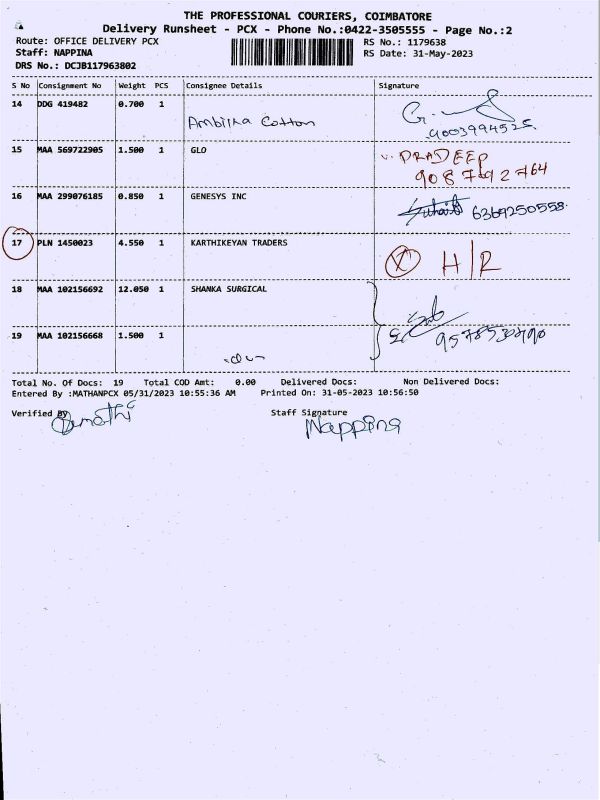 THE PROFESSIONAL COURIERS, COIMBATORE
Delivery Runsheet - PCX - Phone No.:0422-3505555 - Page No.:2
Route: OFFICE DELIVERY PCX RS No.: 1179638
Staff: NAPPINA RS Date: 31-May-2023
DRS No.: DCJB117963802
S No Consignment No Weight PCS Consignee Details Signature
14 DDG 419482 0.700 1 Cotton
9003994525
15 MAA 569722905 1.500 1 GLO PRADEEP
16 MAA 299076185 0.850 1 GENESYS INC 6369250558
17 PLN 1450023 4.550 1 KARTHIKEYAN TRADERS H/R
18 MAA 102156692 12.050 1 SHANKA SURGICAL
19 MAA 102156668 1.500 1
Total No. Of Docs: 19 Total COD Amt: 0.00 Delivered Docs: Non Delivered Docs:
Entered By :MATHANPCX 05/31/2023 10:55:36 AM Printed On: 31-05-2023 10:56:50
Verified By Staff Signature
Nappina